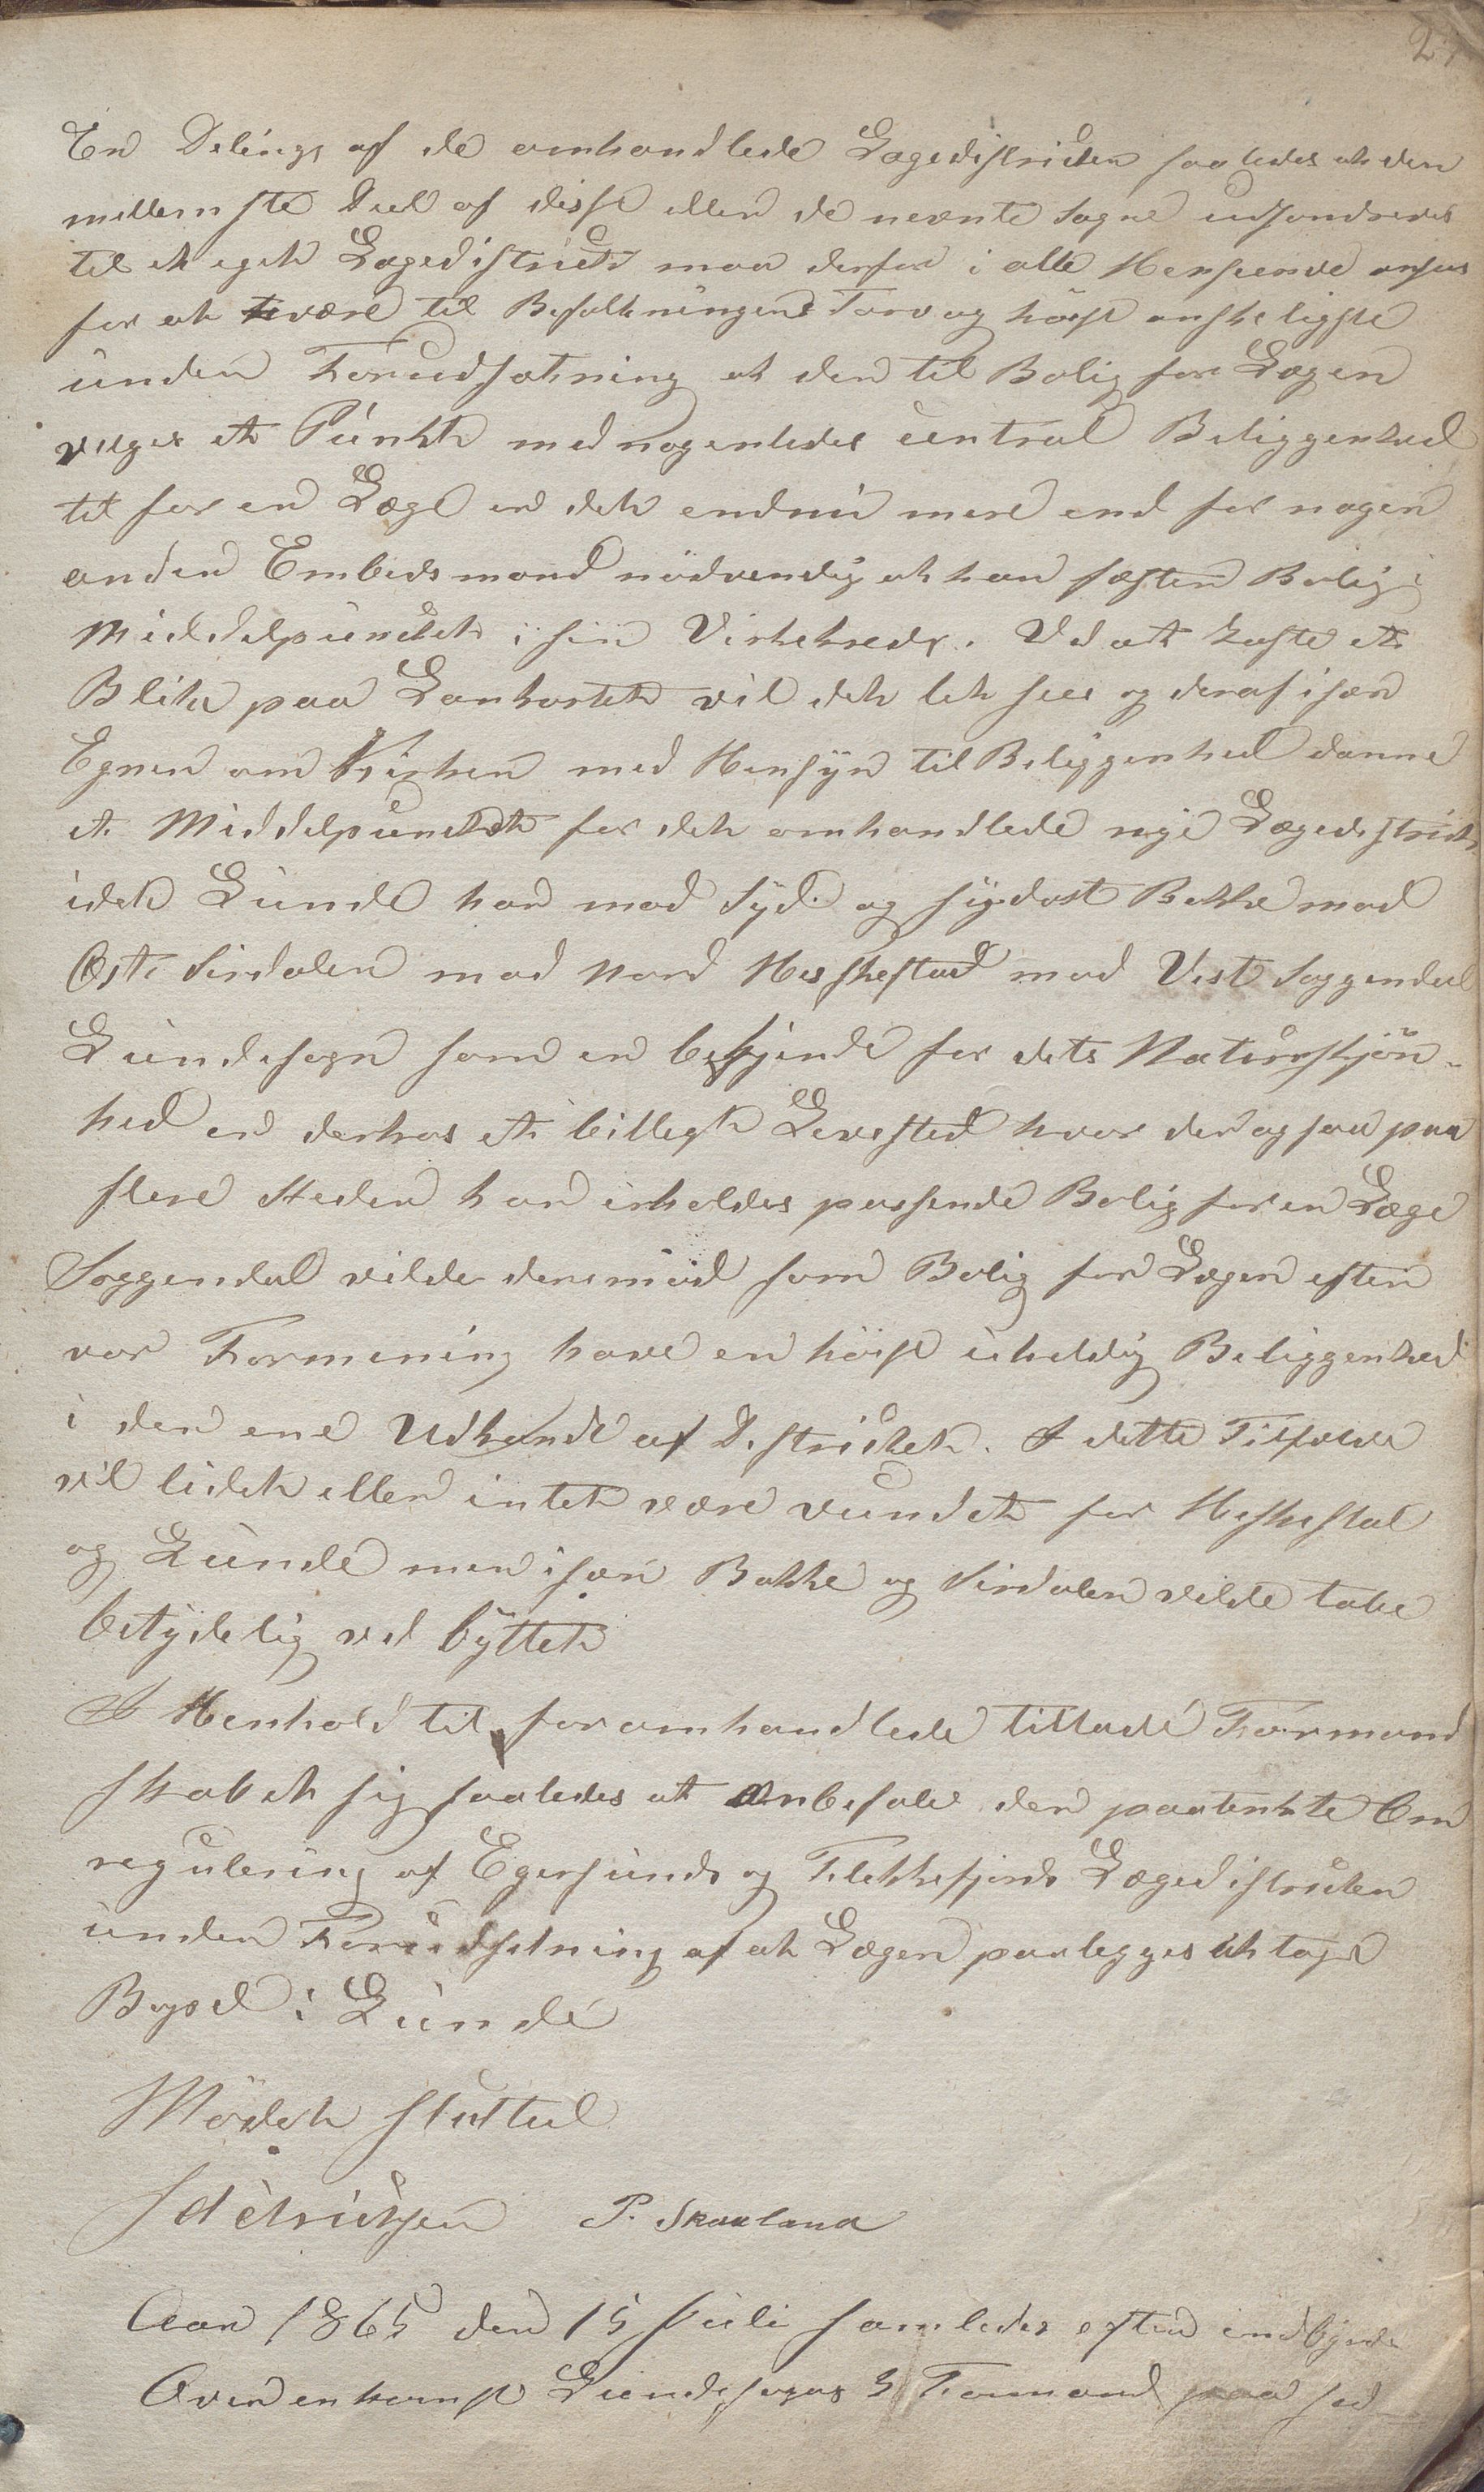 27
En Deling af de omhandlede Lægedistricter saaledes at den
mellemste Deel af disse eller de nevnte Sogne udsondreves
til et eget Lægedistrict maa derfor i alle Henseende ansees
for at være til Befolkningens Tarv og höist önskeligste
under Forudsætning at der til Bolig for Lægen
velges et Punkt med nogenledes central Beliggenhed
til for en Læge er det endnu mere end for nogen
anden Embedsmand nödvendig at han fæster Bolig i
Middelpunctet i sin Virkekreds. Ved at kaste et
Blik paa Lankortet vil det let sees og deraf især
Egnen om Kirken med Hensyn til Beliggenhed danne
et Middelpunctet for det omhandlede nye Lægedistrict
idet Lunde har mod Syd og sydost Bakke mod
Öst Sirdalen mod Nord Heskestad mod Vest Soggendal
Lundesogn som er bekjendt for dets Naturskjön-
hed er derhos et billigt Levested hvor der ogsaa paa
flere Steder kan erholdes passende Bolig for en Læge
Soggendal vilde derimod som Bolig for Lægen efter
vor Formening have en höist uheldig Beliggenhed
i den ene Udkandt af Districtet. I dette Tilfælde
vil lidet eller intet være vundet for Heskestad
og Lunde men især Bakke og Sirdalen vilde tabe
betydelig ved byttet
I Henhold til foromhandlede tillade Formand
skabet sig saaledes at Anbefale den paatenkte Om
regulering af Egersunds og Flekkefjords Lægedistricter
under Forudsetning af at Lægen paalegges at tage
Bopæl i Lunde
Mödet sluttet
P. Skaaland
Aar 1865 den 15 Juli samledes efter indbyrdes
Overenkomst Lundesogns Formand paa sed